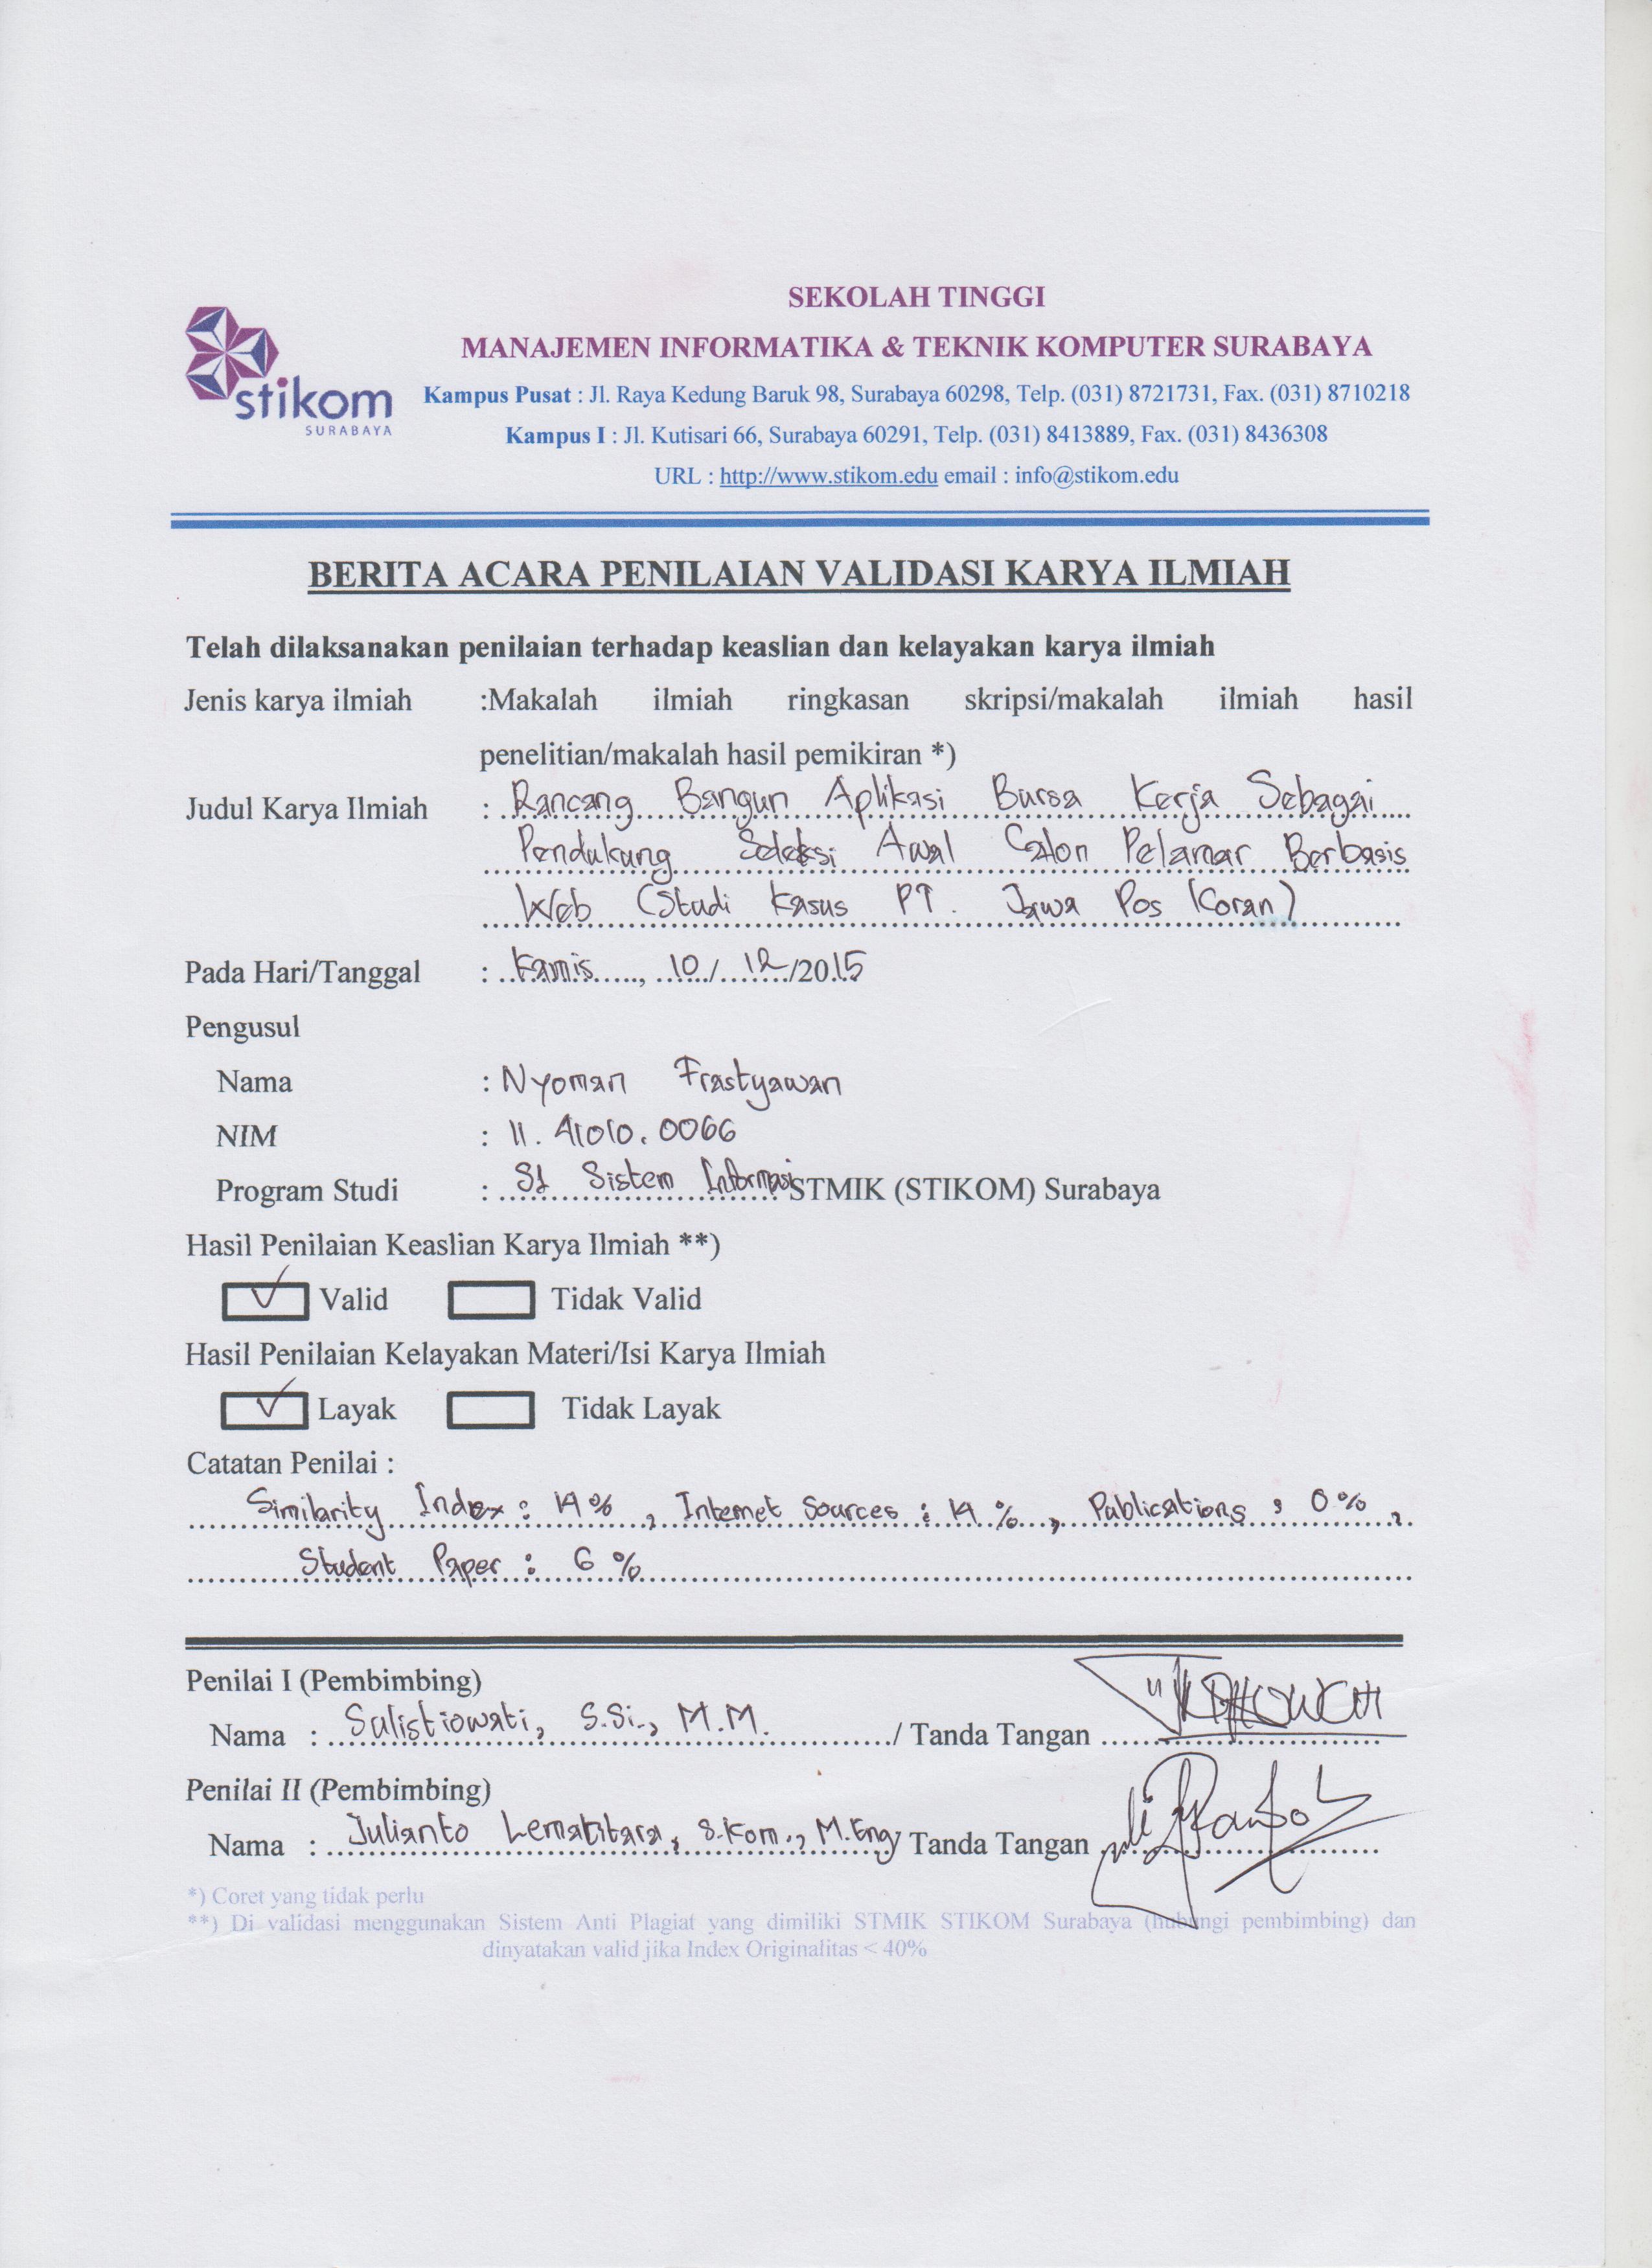 SEKOLAH TINGGI
MANAJEMEN INFORMATIKA & TEKNIK KOMPUTER SURABAYA
stikom
SURABAYA
Kampus Pusat : Jl. Raya Kedung Baruk 98, Surabaya 60298, Telp. (031) 8721731, Fax. (031) 8710218
Kampus I : Jl. Kutisari 66, Surabaya 60291, Telp. (031) 8413889, Fax. (031) 8436308
URL : http://www.stikom.edu email : info@stikom.edu
BERITA ACARA PENILAIAN VALIDASI KARYA ILMIAH
Telah dilaksanakan penilaian terhadap keaslian dan kelayakan karya ilmiah
Jenis karya ilmiah :Makalah ilmiah ringkasan skripsi/makalah ilmiah hasil
penelitian/makalah hasil pemikiran *)
Judul Karya Ilmiah : Rancang Bangun Aplikasi Bursa Kerja Sebagai
Pendukung Seleksi Awal Calon Pelamar Berbasis
Web (Studi Kasus PT. Jawa Pos (Koran)
Pada Hari/Tanggal : Kamis, 10/12/2015
Pengusul
Nama : Nyoman Frastyawan
NIM : 11.41010.0066
Program Studi : S1 Sistem Informasi STMIK (STIKOM) Surabaya
Hasil Penilaian Keaslian Karya Ilmiah **)
Valid Tidak Valid
Hasil Penilaian Kelayakan Materi/Isi Karya Ilmiah
Layak Tidak Layak
Catatan Penilai :
Similarity Index : 14 % , Internet Sources : 14 % , Publications : 0 % ,
Student Paper : 6 %
Penilai I (Pembimbing)
Nama : Sulistiowati, S.Si., M.M. / Tanda Tangan
Penilai II (Pembimbing)
Nama : Julianto Lematitara, S.Kom., M.Eng / Tanda Tangan
*) Coret yang tidak perlu
**) Di validasi menggunakan Sistem Anti Plagiat yang dimiliki STMIK STIKOM Surabaya (hubungi pembimbing) dan
dinyatakan valid jika Index Originalitas < 40%